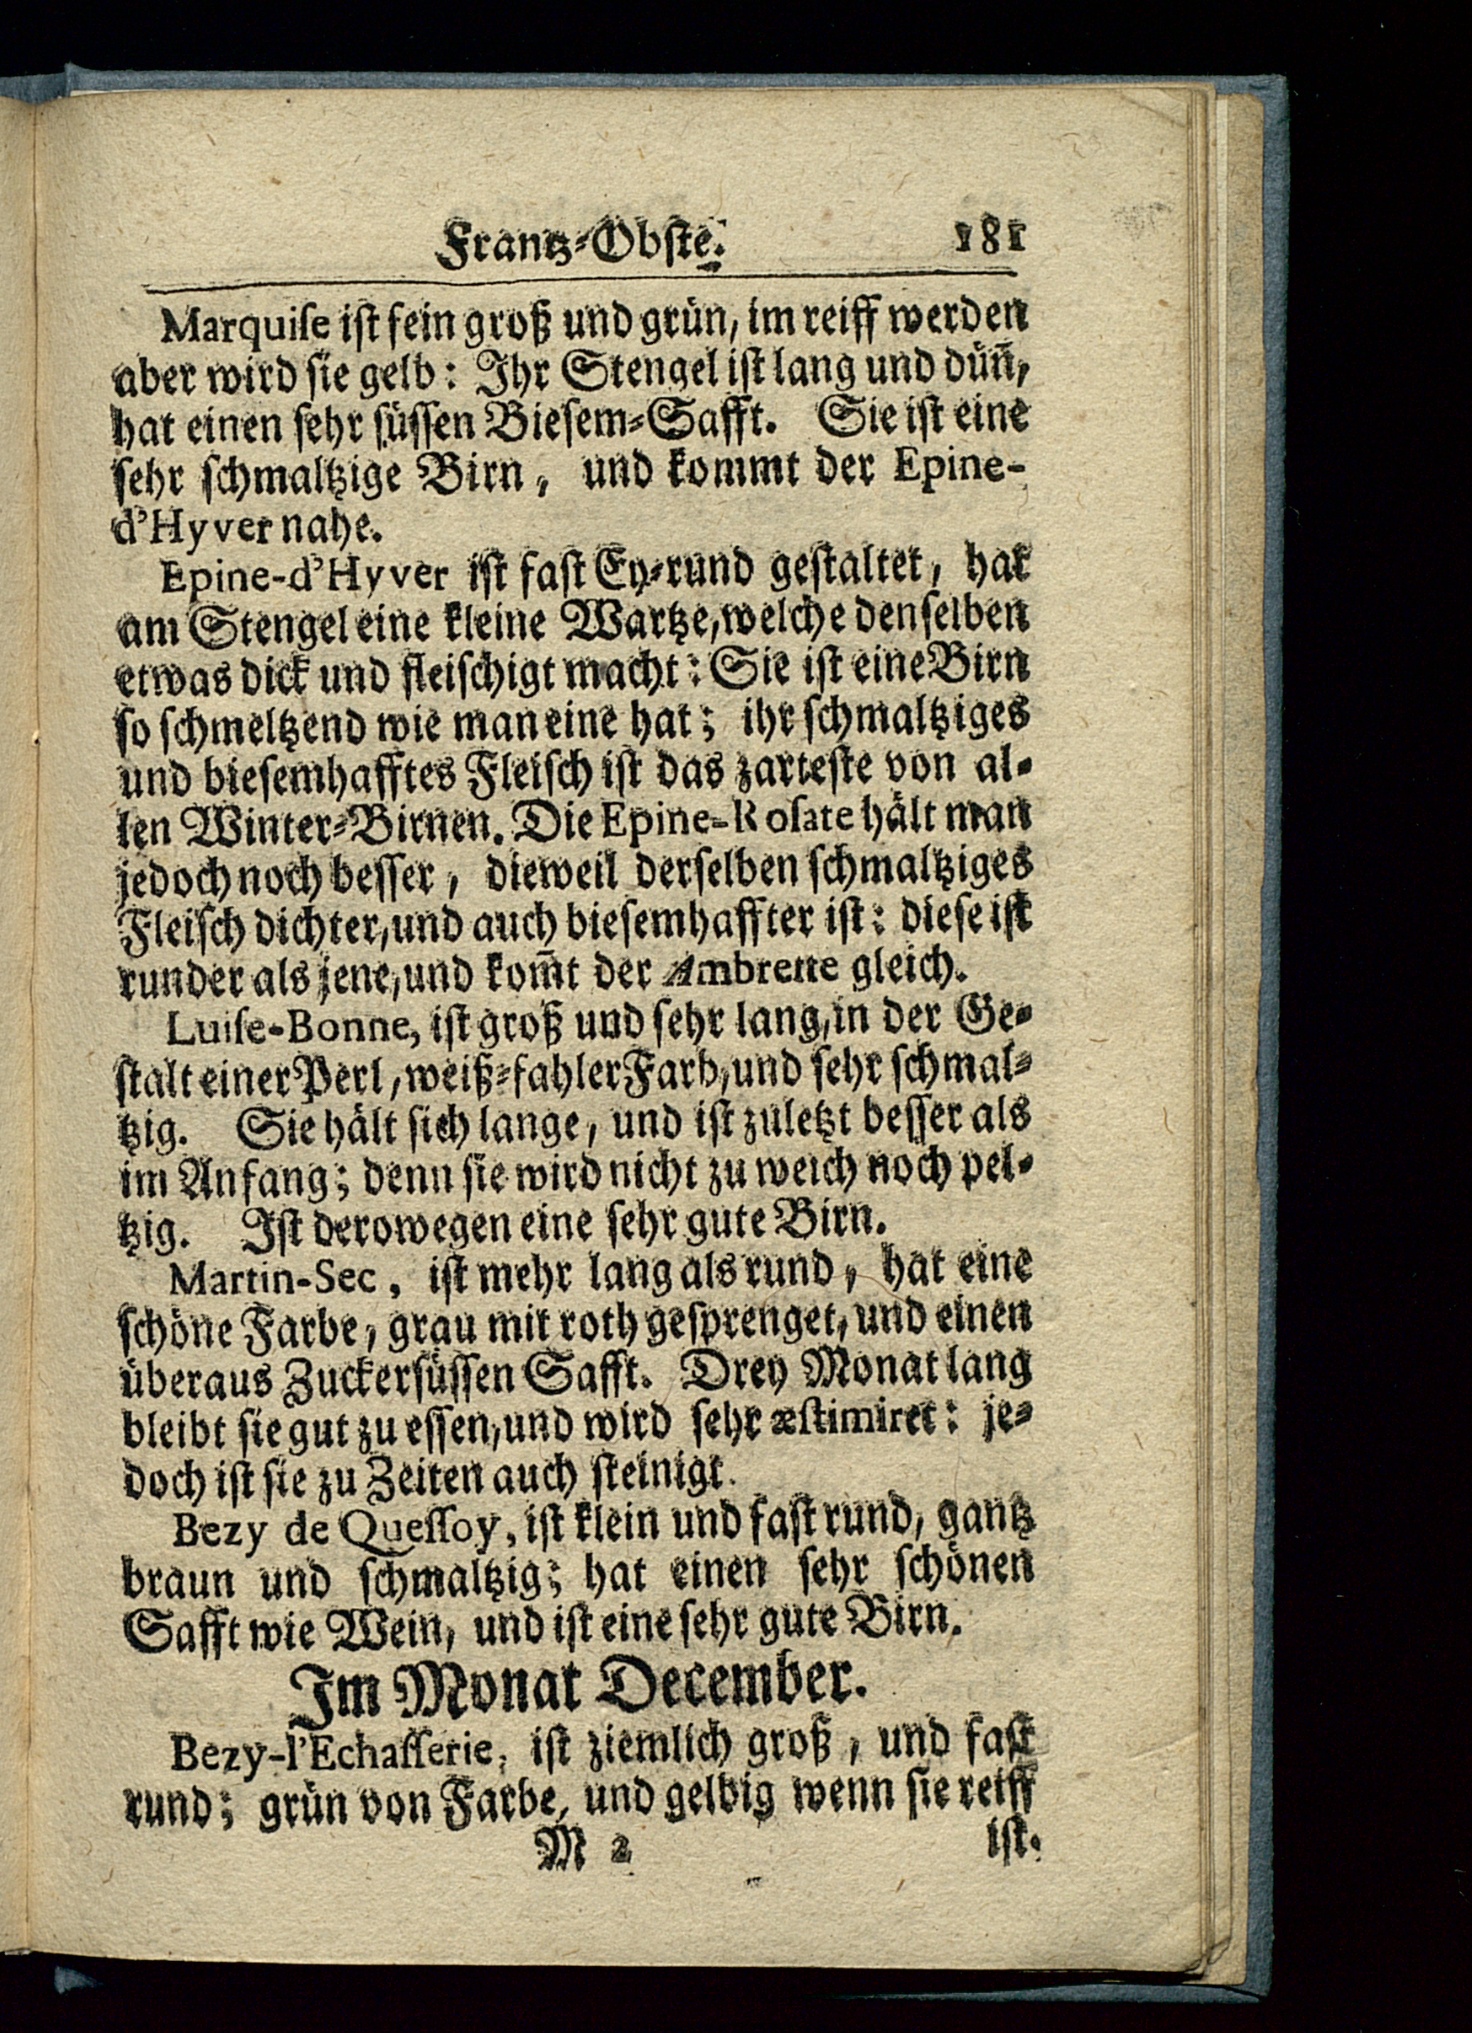 Frantz-Obste. 181
Marquiſe iſt fein groß und grün, im reiff werden
aber wird ſie gelb: Ihr Stengel iſt lang und dün̄,
hat einen ſehr ſüſſen Bieſem-Safft. Sie iſt eine
ſehr ſchmaltzige Birn, und kommt der Epine-
d'Hyver nahe.
Epine-d'Hyver iſt faſt Ey-rund geſtaltet, hat
am Stengel eine kleine Wartze, welche denſelben
etwas dick und fleiſchigt macht: Sie iſt eine Birn
ſo ſchmeltzend wie man eine hat; ihr ſchmaltziges
und bieſemhafftes Fleiſch iſt das zarteſte von al-
len Winter-Birnen. Die Epine-Roſate hält man
jedoch noch beſſer, dieweil derſelben ſchmaltziges
Fleiſch dichter, und auch bieſemhaffter iſt: dieſe iſt
runder als jene, und kom̄t der Ambrette gleich.
Luiſe-Bonne, iſt groß und ſehr lang, in der Ge-
ſtalt einer Perl, weiß-fahler Farb, und ſehr ſchmal-
tzig. Sie hält ſich lange, und iſt zuletzt beſſer als
im Anfang; denn ſie wird nicht zu weich noch pel-
tzig. Iſt derowegen eine ſehr gute Birn.
Martin-Sec, iſt mehr lang als rund, hat eine
ſchöne Farbe, grau mit roth geſprenget, und einen
überaus Zuckerſüſſen Safft. Drey Monat lang
bleibt ſie gut zu eſſen, und wird ſehr æſtimiret: je-
doch iſt ſie zu Zeiten auch ſteinigt.
Bezy de Queſſoy, iſt klein und faſt rund, gantz
braun und ſchmaltzig; hat einen ſehr ſchönen
Safft wie Wein, und iſt eine ſehr gute Birn.
Im Monat December.
Bezy-l'Echaſſerie, iſt ziemlich groß, und faſt
rund; grün von Farbe, und gelbig wenn ſie reiff
M 2 iſt.